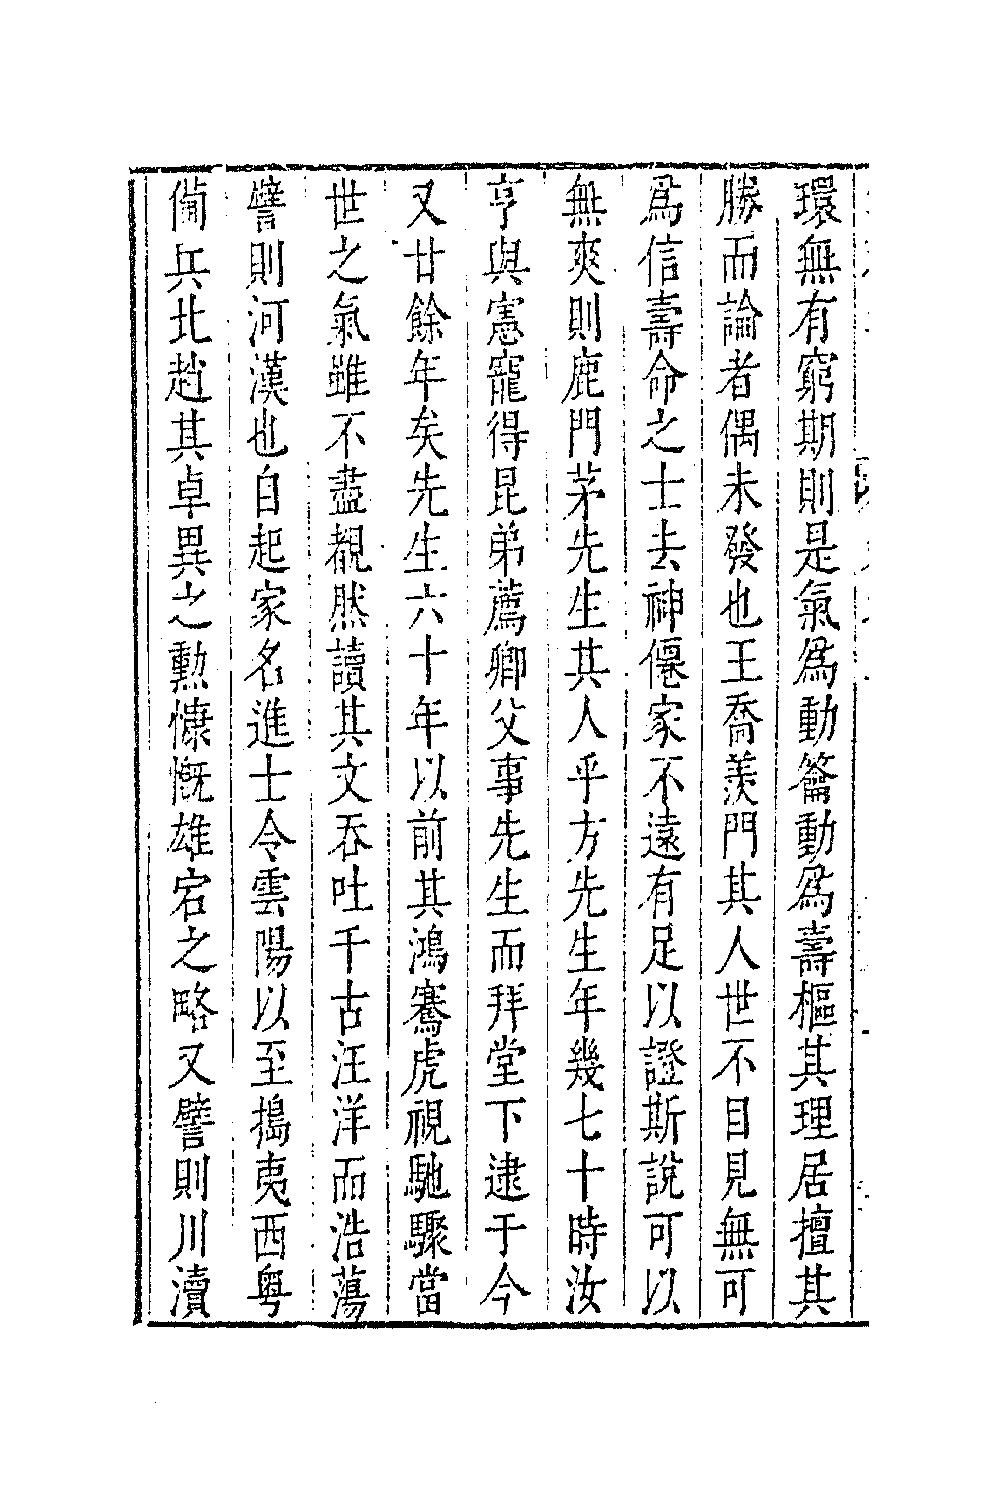 環無有窮期則是氣爲動籥動爲壽樞其理居擅其
勝而論者偶未發也王喬羨門其人世不目見無可
爲信壽命之士去神僊家不遠有足以證斯說可以
無爽則鹿門茅先生其人乎方先生年幾七十時汝
亨與憲寵得昆弟薦卿父事先生而拜堂下逮于今
又廿餘年矣先生六十年以前其鴻騫虎視馳驟當
世之氣雖不盡覩然讀其文吞吐千古汪洋而浩蕩
譬則河漢也自起家名進士令雲陽以至搗夷西粵
備兵北趙其卓異之勲慷慨雄宕之略又譬則川瀆